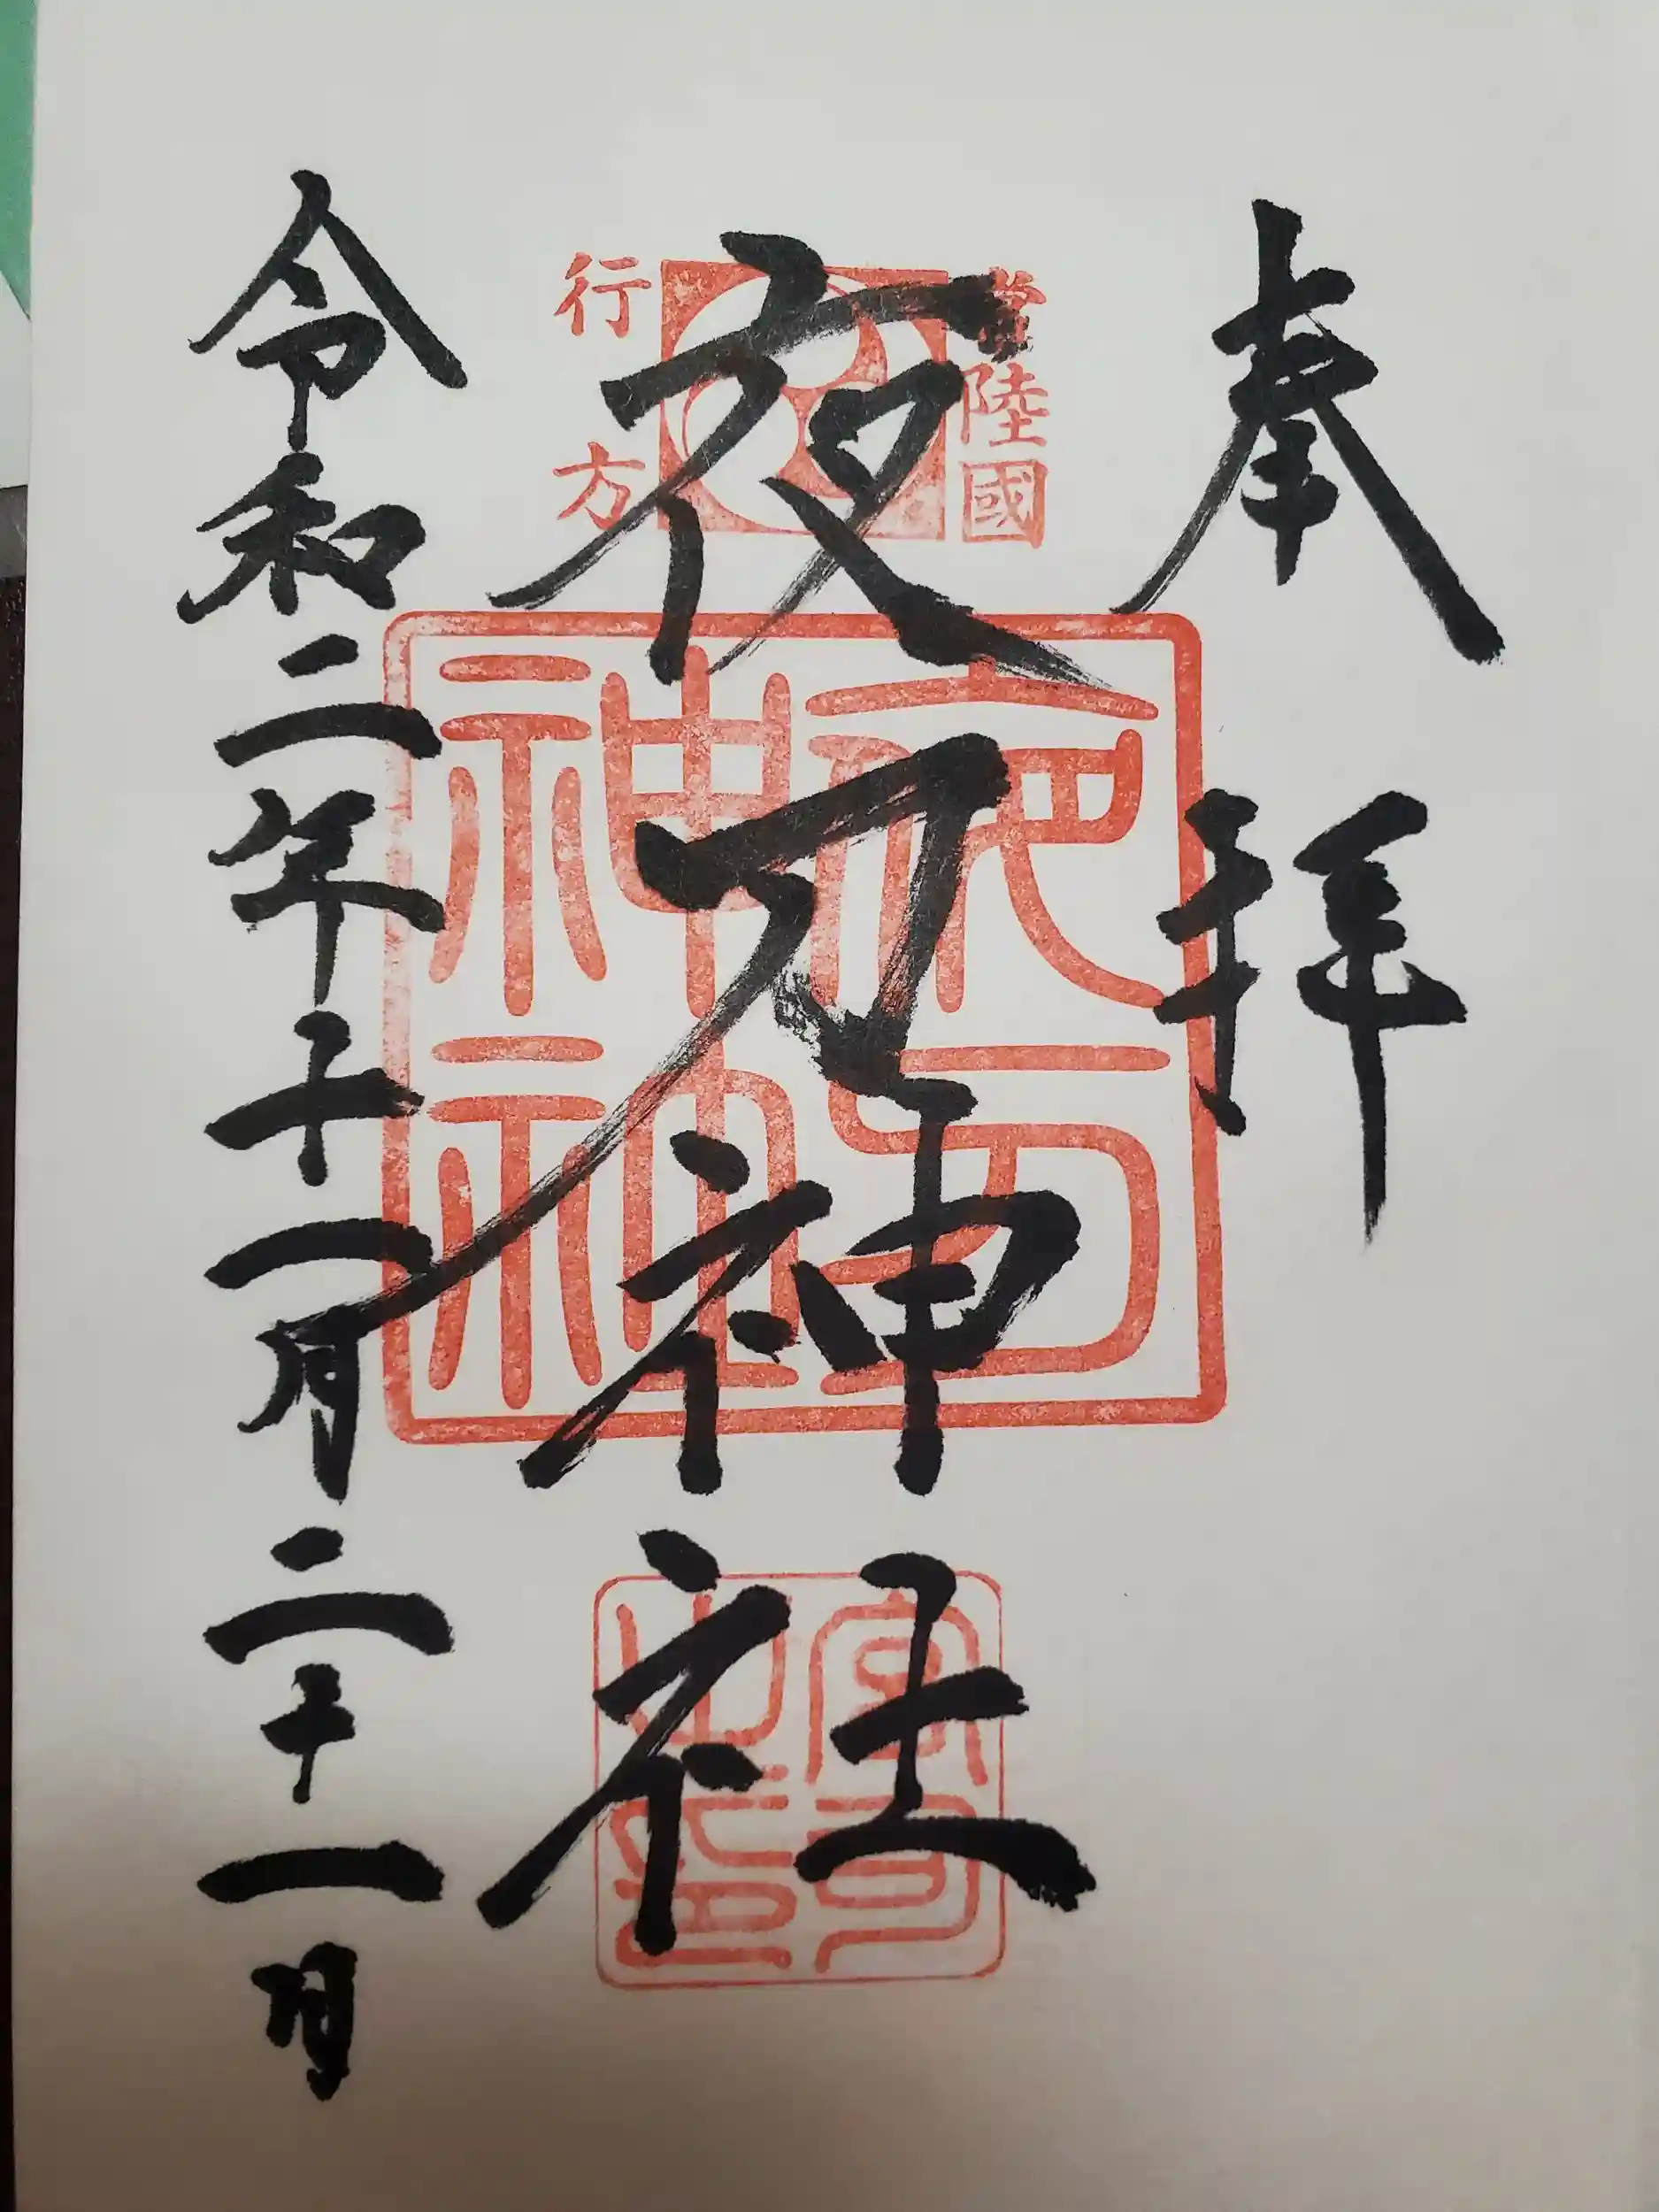 奉拝
常陸國
夜刀神社
行方
夜刀
神社
宮司
之印
令和二年十一月二十一日